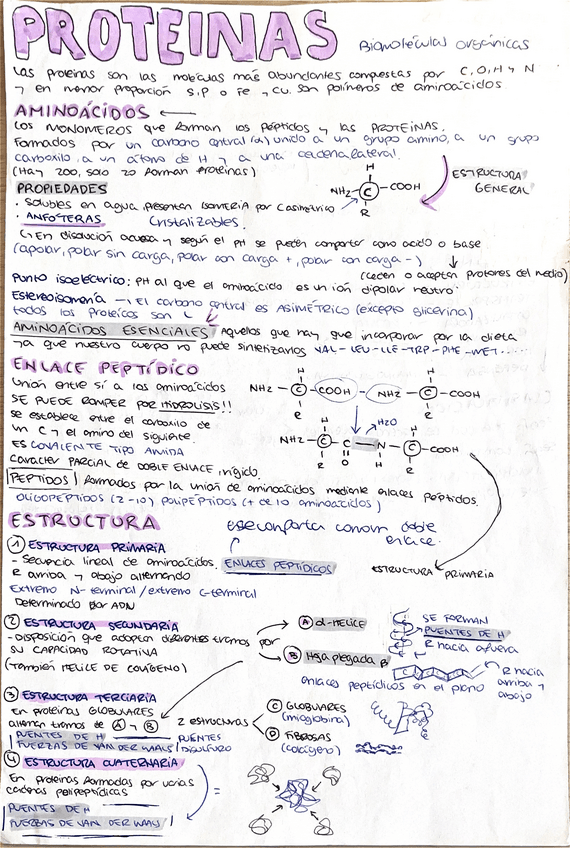 PROTEINAS Biomoléculas orgánicas
Las proteínas son las moléculas más abundantes compuestas por C, O, H y N
y en menor proporción S, P o Fe y Cu. Son polímeros de aminoácidos.
AMINOÁCIDOS
LOS MONÓMEROS que forman los péptidos y las PROTEÍNAS.
Formados por un carbono central (α) unido a un grupo amino, a un grupo
carboxilo, a un átomo de H y a una cadena lateral.
(Hay 200, solo 20 forman proteínas)
H
NH2 - C - COOH
R
ESTRUCTURA
GENERAL
PROPIEDADES
· Solubles en agua, presentan ISOMERÍA por C asimétrico
· ANFÓTERAS Cristalizables.
En disolución acuosa y según el PH se pueden comportar como ácido o base
(apolar, polar sin carga, polar con carga +, polar con carga -)
(ceden o aceptan protones del medio)
Punto isoeléctrico: PH al que el aminoácido es un ión dipolar neutro.
Estereoisomería → El carbono central es ASIMÉTRICO (excepto glicerina)
todos los proteicos son L
AMINOÁCIDOS ESENCIALES Aquellos que hay que incorporar por la dieta
ya que nuestro cuerpo no puede sintetizarlos VAL-LEU-ILE-TRP-PHE-MET.....
ENLACE PEPTÍDICO
Unión entre sí a los aminoácidos
SE PUEDE ROMPER POR HIDRÓLISIS!!
se establece entre el carboxilo de
un C y el amino del siguiente.
ES COVALENTE TIPO AMIDA
Carácter PARCIAL DE DOBLE ENLACE, rígido.
H H
NH2 - C - COOH - NH2 - C - COOH
R R
H2O
H H
NH2 - C - C = N - C - COOH
R O H R
PEPTIDOS formados por la unión de aminoácidos mediante enlaces péptidos.
OLIGOPÉPTIDOS (2-10) POLIPÉPTIDOS (+ de 10 aminoácidos)
ESTRUCTURA
ese comporta como un doble
enlace.
1 ESTRUCTURA PRIMARIA
- Secuencia lineal de aminoácidos. ENLACES PEPTIDICOS
R arriba y abajo alternando
ESTRUCTURA PRIMARIA
Extremo N-terminal / extremo C-terminal
Determinado por ADN
2 ESTRUCTURA SECUNDARIA
- Disposición que adoptan diferentes tramos por
SU CAPACIDAD ROTATIVA
(También HELICE DE COLÁGENO)
A α-HELICE
B Hoja plegada β
SE FORMAN
PUENTES DE H
R hacia afuera
enlaces peptídicos en el plano
R hacia
arriba y
abajo
3 ESTRUCTURA TERCIARIA
en proteínas GLOBULARES
alternan tramos de A y B
PUENTES DE H PUENTES
FUERZAS DE VAN DER WAALS DISULFURO
2 ESTRUCTURAS
C GLOBULARES
(mioglobina)
D FIBROSAS
(colágeno)
4 ESTRUCTURA CUATERNARIA
En proteínas formadas por varias
cadenas polipeptídicas
PUENTES DE H
FUERZAS DE VAN DER WAALS
=